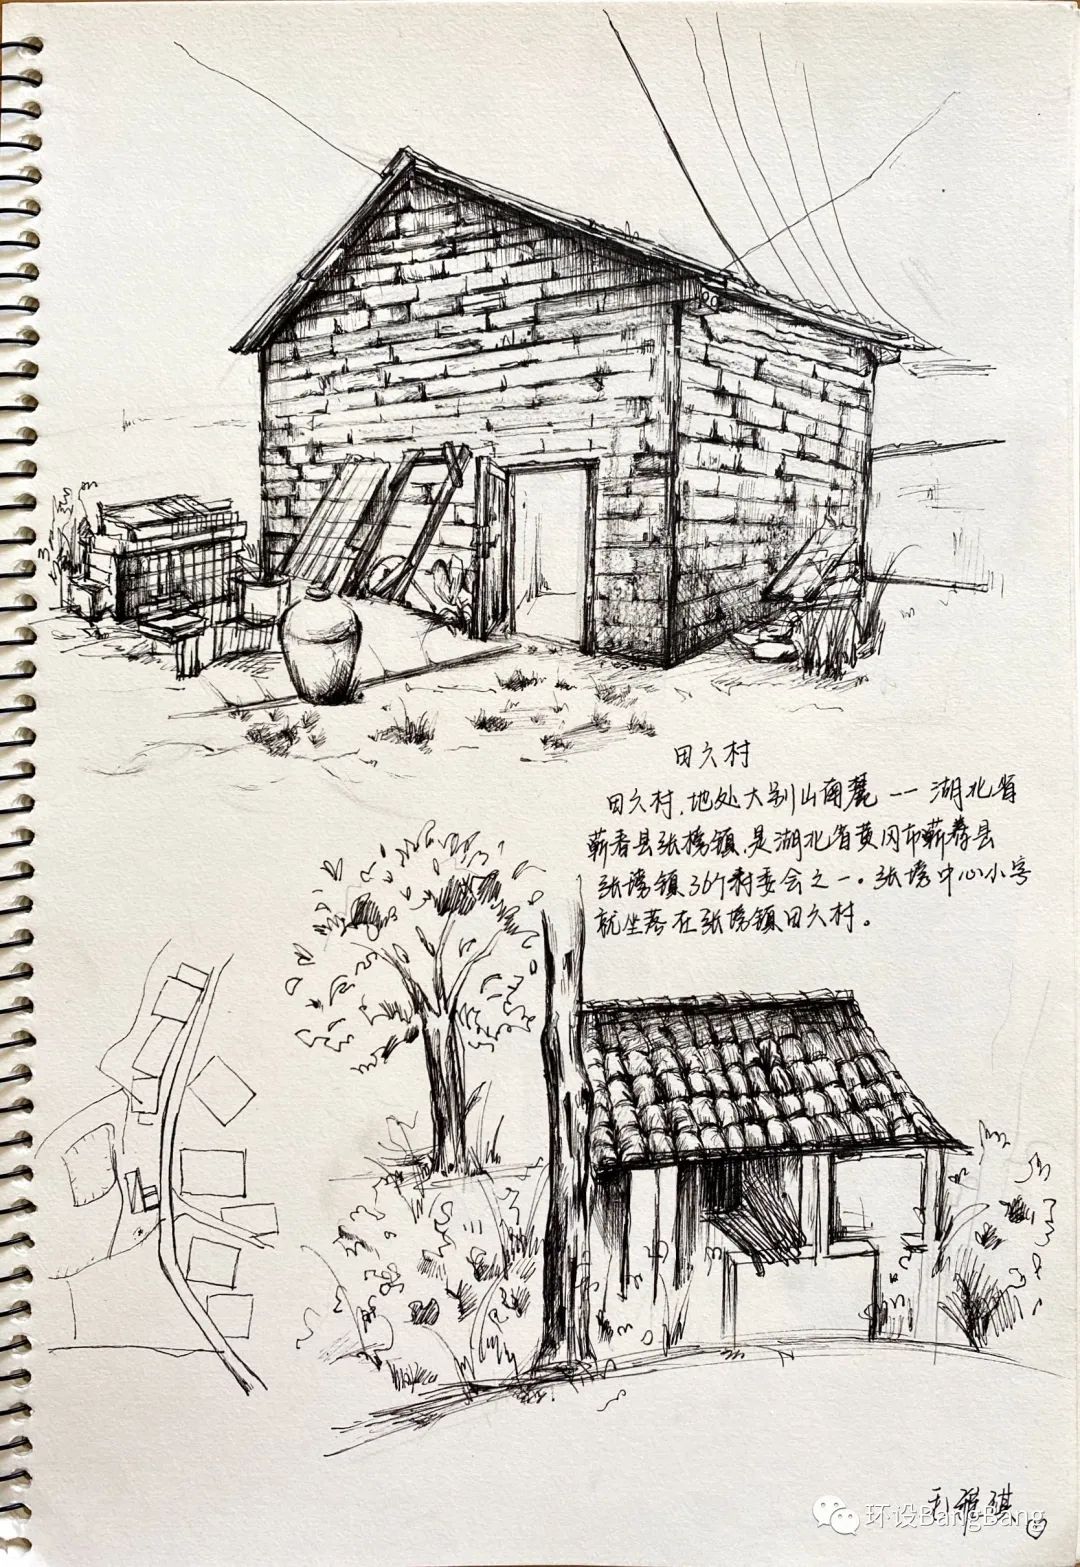 田久村
田久村，地处大别山南麓 -- 湖北省
蕲春县张塝镇，是湖北省黄冈市蕲春县
张塝镇36个村委会之一。张塝中心小学
就坐落在张塝镇田久村。
环设BangBang